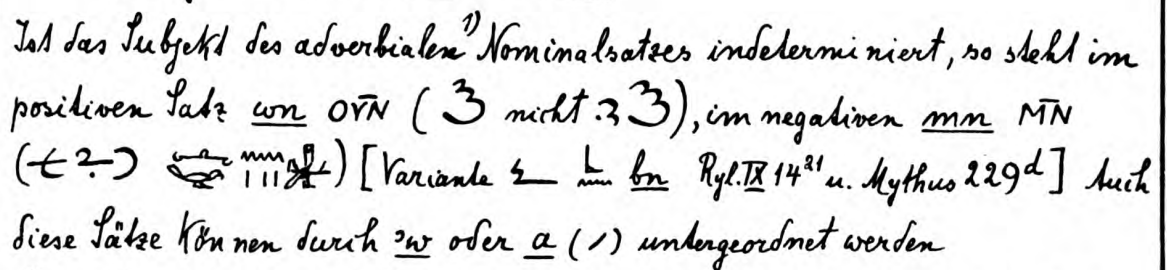 Ist das Subjekt des adverbialen¹⁾ Nominalsatzes indeterminiert, so steht im
positiven Satz wn ⲟⲩⲛ̄ ( nicht ), im negativen mn ⲙ̄ⲛ̄
( ) [Variante bn Ryl. IX 14²¹ u. Mythus 229ᵈ] Auch
diese Sätze können durch ꜣw oder a (/) untergeordnet werden